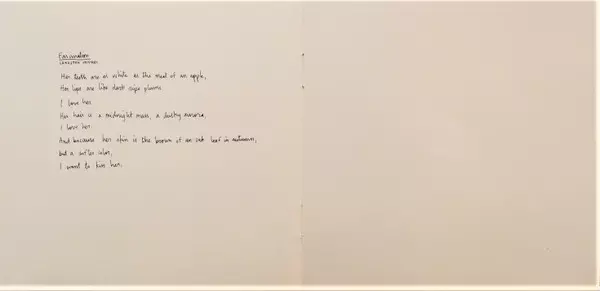 Fascination
LANGSTON HUGHES
Her teeth are as white as the meat of an apple,
Her lips are like dark ripe plums.
I love her.
Her hair is a midnight mass, a dusky aurora,
I love her.
And because her skin is the brown of an oak leaf in autumn,
but a softer color,
I want to kiss her.